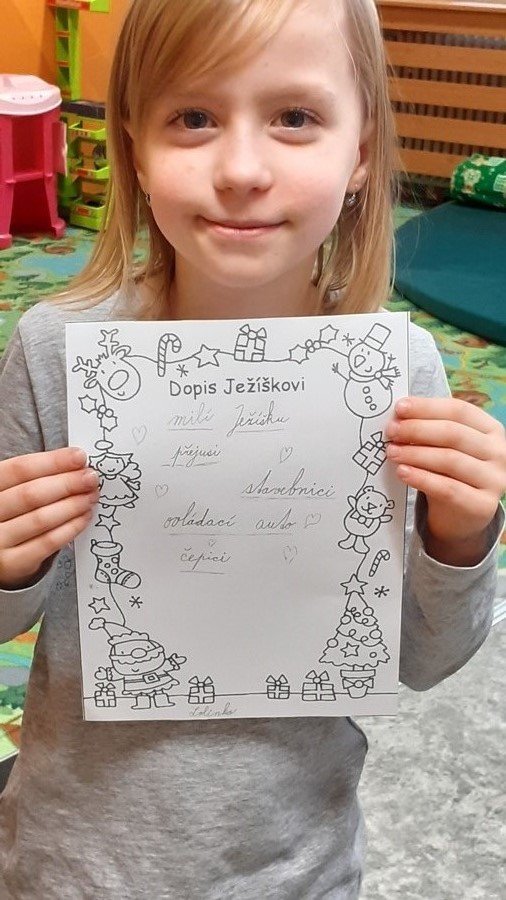 Dopis Ježíškovi
milí Ježísku
přejusi
stavebnici
ovládací auto
čepici